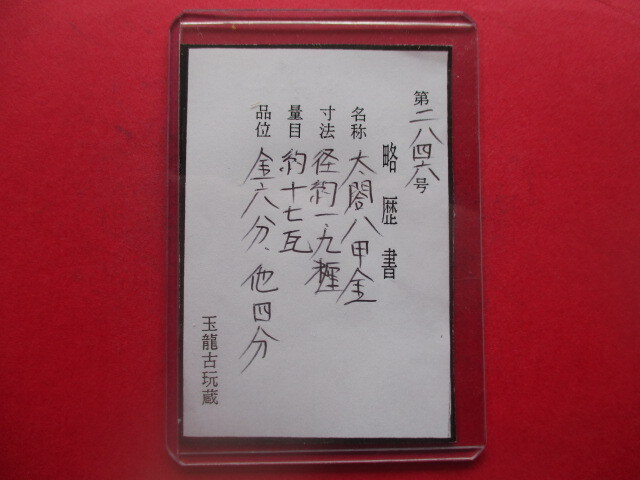 第二八四六号
略歴書
名称 太閤八甲金
寸法 径約一.九糎
量目 約十七瓦
品位 金六八分、他四分
玉龍古玩蔵